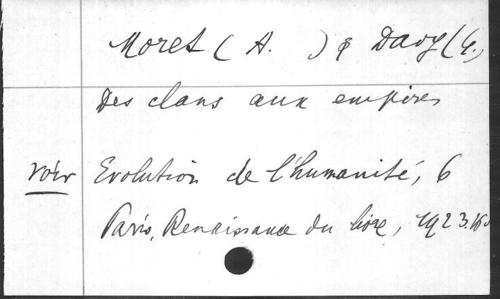 Moret (A. ) & Davy (G.,
Des clans aux empires
voir Evolution de l'humanité, 6
Paris, Renaissance du livre, 1923.